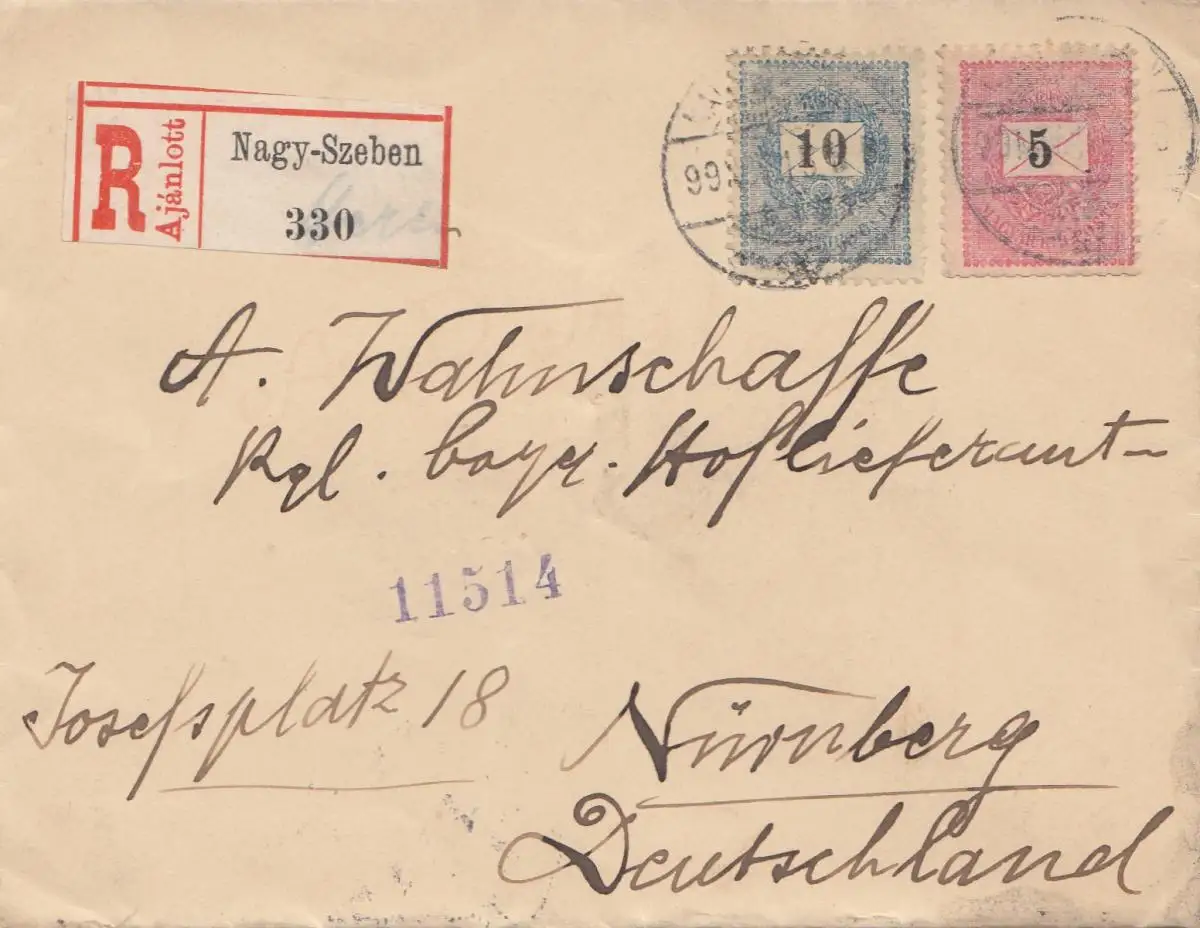 R
Ajánlott
Nagy-Szeben
330
10
5
99
A. Wahnschaffe
Kgl. bayr. Hoflieferant
11514
Josefsplatz 18
Nürnberg
Deutschland